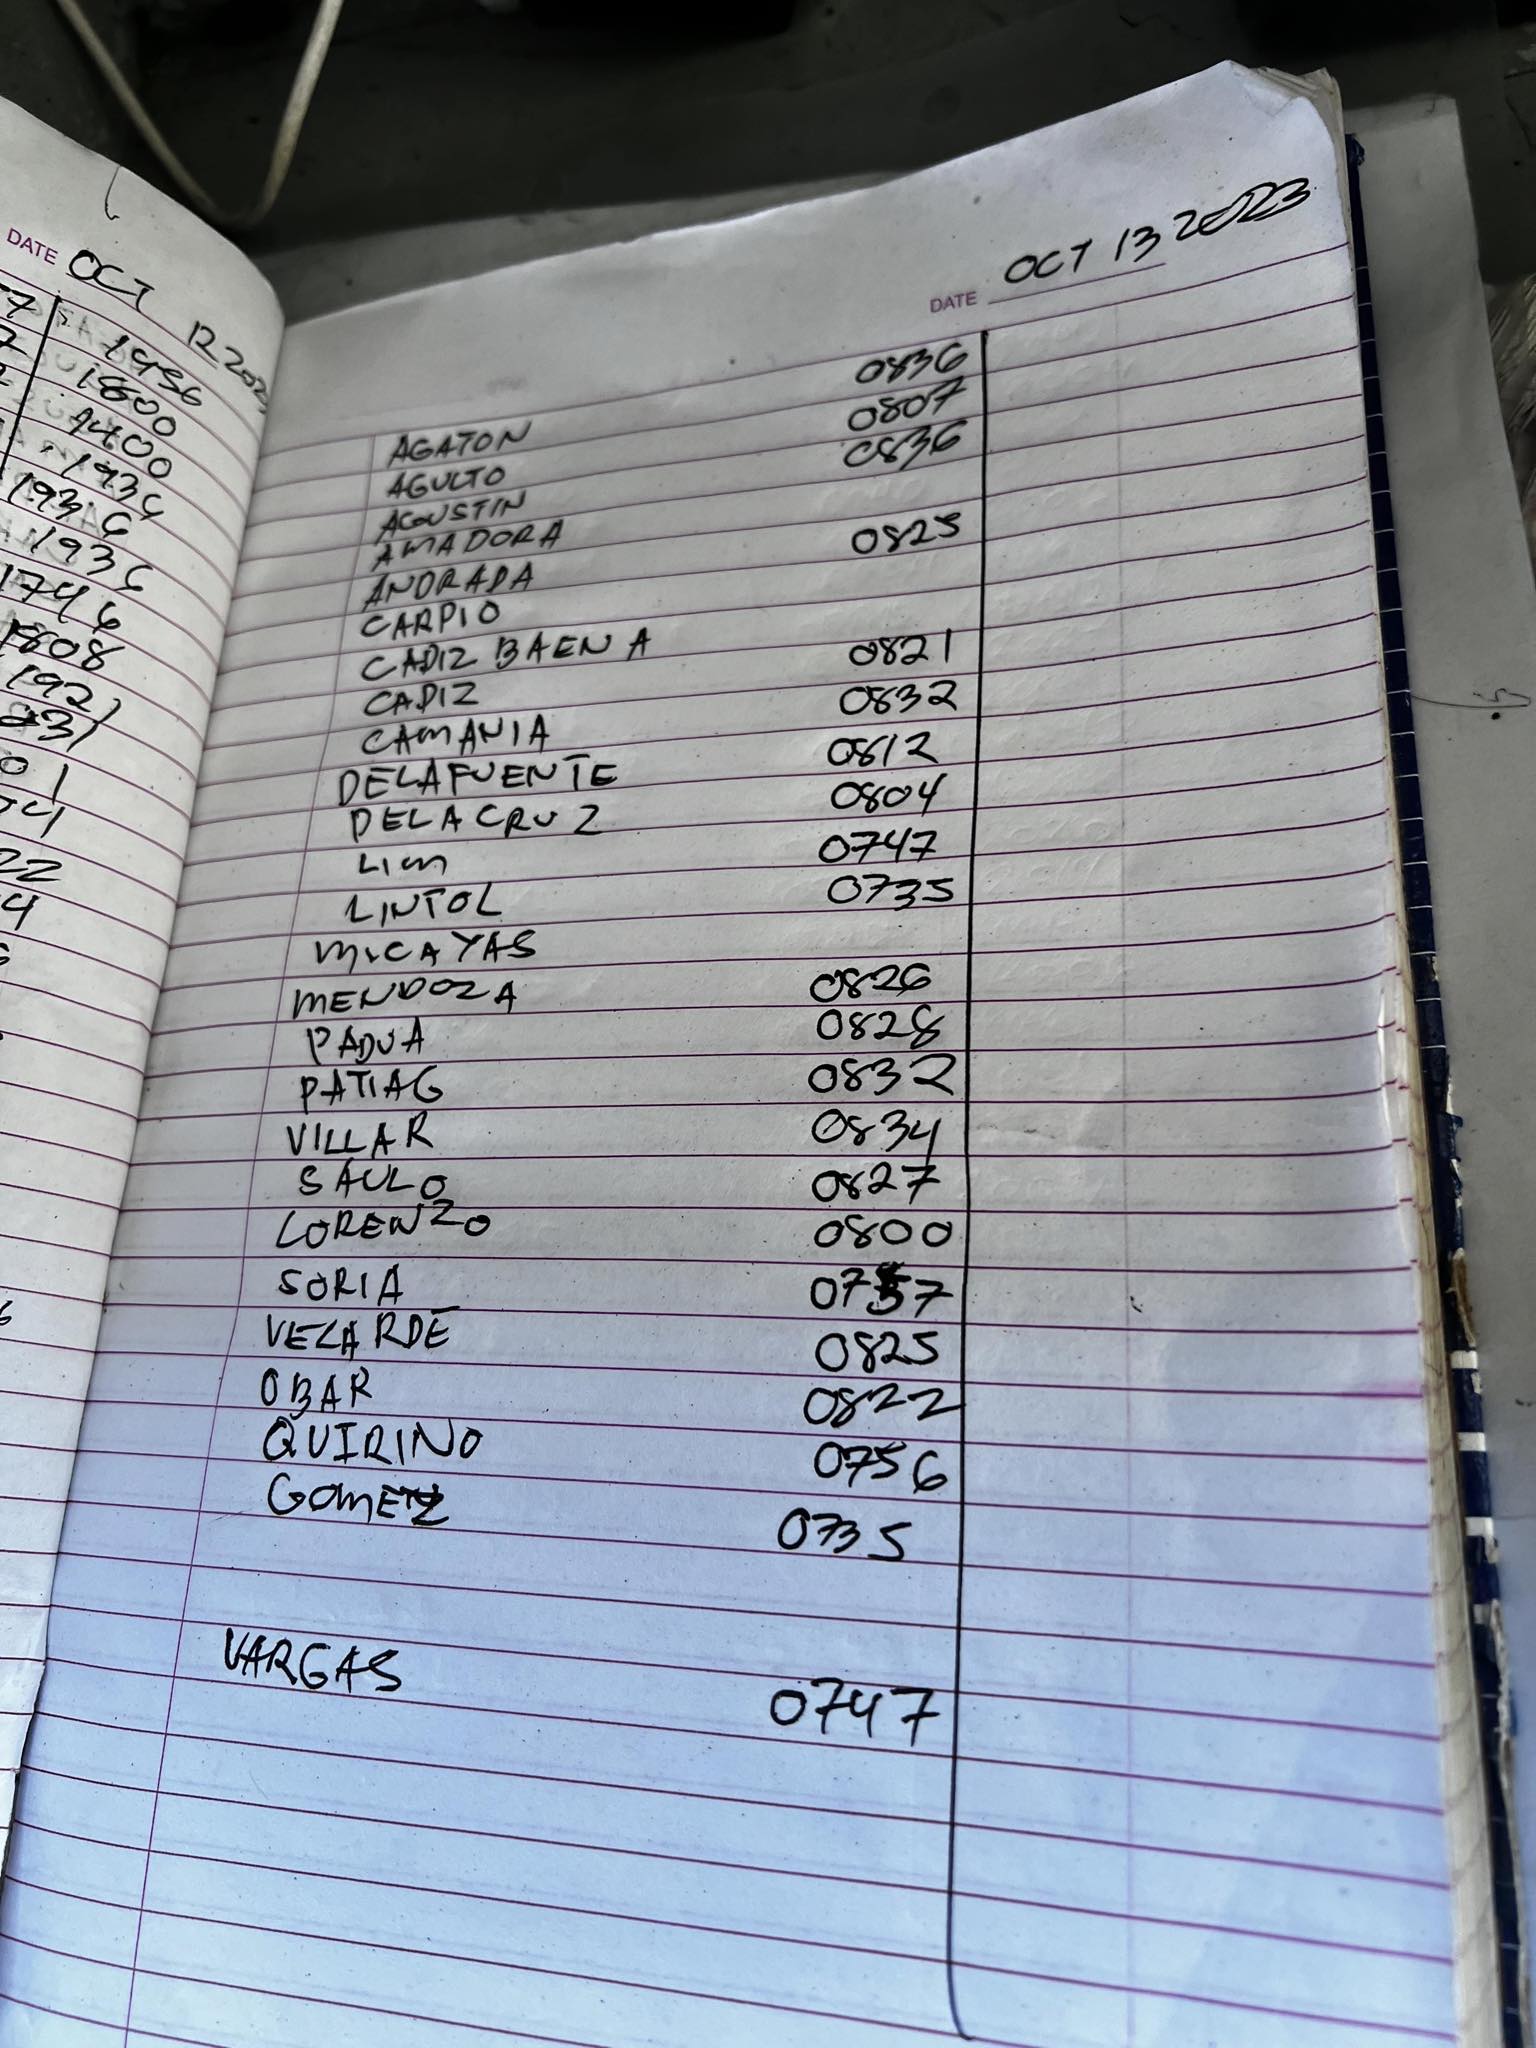 DATE OCT 12 202
1956
1800
1400
1936
1936
1936
1746
1808
1921
22
DATE OCT 13 2023
AGATON 0836
AGULTO 0807
AGUSTIN 0836
AMADORA
ANDRADA 0825
CARPIO
CADIZ BAENA
CADIZ 0821
CAMANIA 0832
DELAFUENTE 0812
DELACRUZ 0804
LIM 0747
LINTOL 0735
MICAYAS
MENDOZA 0826
PADUA 0828
PATIAG 0832
VILLAR 0834
SAULO 0827
LORENZO 0800
SORIA 0757
VELARDE 0825
OBAR 0822
QUIRINO 0756
GOMEZ 0735
VARGAS 0747